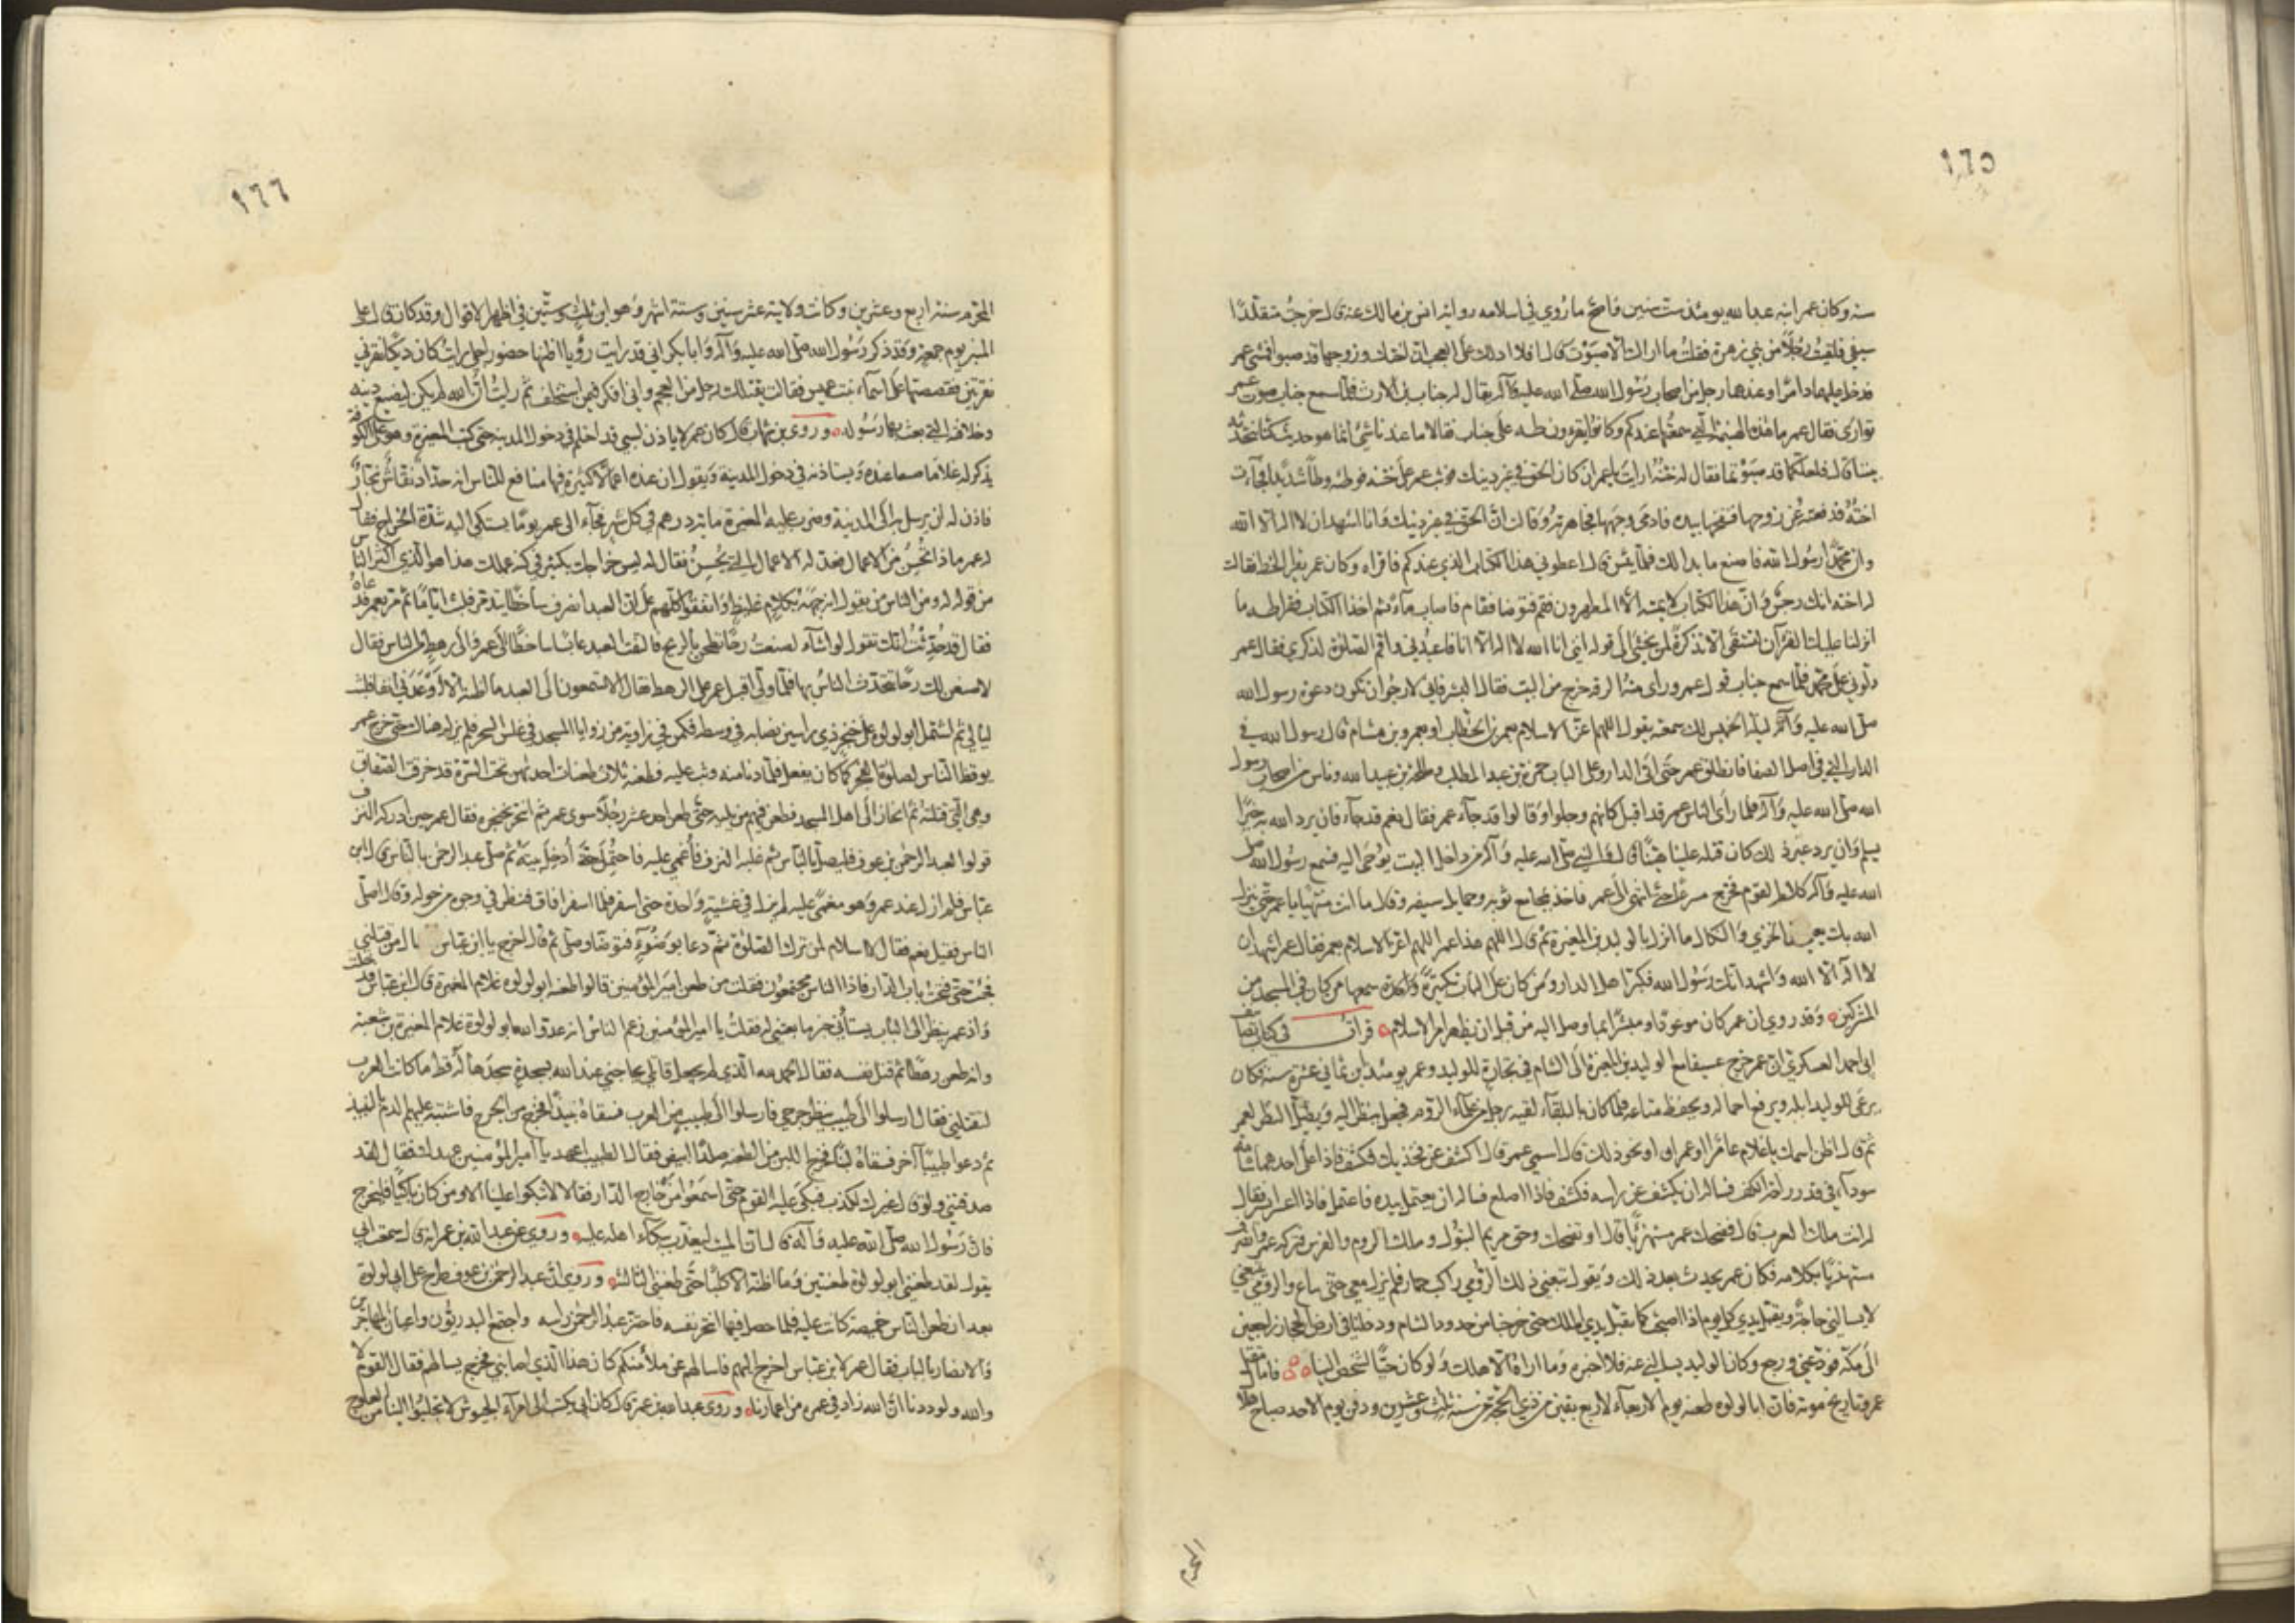 ١٦٥
سنه وكان عمر ابنه عبد الله يومئذ ست سنين فاصح ما روي في اسلامه رواية انس بن مالك عنه قال خرجت متقلدا
سيفي فلقيت رجلا من بني زهرة فقلت ما اراك الا صبوت قال افلا ادلك على العجب ان اختك وزوجها قد صبوا فمشى عمر
فدخل عليهما ذامرا وعندهما رجل من اصحاب رسول الله صلى الله عليه وآله يقال له خباب بن الارت فلما سمع خباب صوت عمر
توارى فقال عمر ما هذه الهينمة التي سمعتها عندكم وكانوا يقرءون طه على خباب فقالا ما عندنا شئ انما هو حديث كنا نتحدثه
بيننا قال فلعلكما قد صبوتما فقال له ختنه ارايت يا عمر ان كان الحق في غير دينك فوثب عمر على ختنه فوطئه وطأ شديدا فجآءت
اخته فدفعته عن زوجها فنفحها بيده فادمى وجهها فجاهرته وقالت ان الحق في غير دينك وانا اشهد ان لا اله الا الله
وان محمدا رسول الله فاصنع ما بدا لك فلما يئس قال اعطوني هذا الكتاب الذي عندكم فاقراه وكان عمر يقرا الخط فقالت
له اخته انك رجس وان هذا الكتاب لا يمسه الا المطهرون فقم فتوضا فقام فاصاب مآء ثم اخذ الكتاب فقرا طه ما
انزلنا عليك القرآن لتشقى الا تذكرة لمن يخشى الى قوله انني انا الله لا اله الا انا فاعبدني واقم الصلوة لذكري فقال عمر
دلوني على محمد فلما سمع خباب قول عمر وراى منه الرقه خرج من البيت فقال ابشر فاني لارجو ان تكون دعوة رسول الله
صلى الله عليه وآله ليلة الخميس لك سمعته يقول اللهم اعز الاسلام بعمر بن الخطاب او بعمرو بن هشام قال رسول الله في
الدار التي في اصل الصفا فانطلق عمر حتى اتى الدار وعلى الباب حمزة بن عبد المطلب وطلحة بن عبيد الله وناس من اصحاب رسول
الله صلى الله عليه وآله فلما رأى الناس عمر قد اقبل كانهم وجلوا وقالوا قد جآء عمر فقال نعم قد جآء فان يرد الله به خيرا
يسلم وان يرد غير ذلك كان قتله علينا هينا قال والنبي صلى الله عليه وآله من داخل البيت يوحى اليه فسمع رسول الله صلى
الله عليه وآله كلام القوم فخرج مسرعا حتى انتهى الى عمر فاخذ بمجامع ثوبه وحمايل سيفه وقال ما انت منتهيا يا عمر حتى ينزل
الله بك من الخزي والنكال ما انزل بالوليد بن المغيرة ثم قال اللهم هذا عمر اللهم اعز الاسلام بعمر فقال عمر اشهد ان
لا اله الا الله واشهد انك رسول الله فكبر اهل الدار ومن كان على الباب تكبيرة واحدة سمعها من كان في المسجد من
المشركين وقد روي ان عمر كان موعودا ومبشرا بما وصل اليه من قبل ان يظهر امر الاسلام قرات في كتاب تصانيف
ابي احمد العسكري ان عمر خرج عسيفا مع الوليد بن المغيرة الى الشام في تجارة للوليد وعمر يومئذ ابن ثماني عشرة سنه فكان
يرعى للوليد ابله ويرفع احماله ويحفظ متاعه فلما كان بالبلقآء لقيه رجل من علمآء الروم فجعل ينظر اليه ويطيل النظر لعمر
ثم قال اظن اسمك يا غلام عامرا او عمران او نحو ذلك قال اسمي عمر قال اكشف عن فخذيك فكشف فاذا على احدهما شامة
سودآء في قدر راحة الكف فساله ان يكشف عن راسه فكشف فاذا اصلع فساله ان يعتمل بيده فاعتمل فاذا اعسر ايسر فقال
له انت ملك العرب قال فضحك عمر مستهزئا قال او تضحك وحق مريم البتول وملك الروم والفرس فتركه عمر وانصرف
مستهزئا بكلامه فكان عمر يحدث بعد ذلك ويقول تبعني ذلك الرومي راكب حمار فلم يزل معي حتى باع والرومي يتبعني
لا يسالني حاجة ويقبل يدي كل يوم اذا اصبح كما تقبل يدي الملك حتى خرجنا من حدود الشام ودخلنا في ارض الحجاز راجعين
الى مكة فودعني ورجع وكان الوليد يسالني عنه فلا اخبره وما اراه الا هلك ولو كان حيا لشخص الينا فاما مقتل
عمر وتاريخ موته فان ابا لولوه طعنه يوم الاربعآء لاربع بقين من ذي الحجة من سنة ثلث وعشرين ودفن يوم الاحد صباح هلال
المحرم
١٦٦
المحرم سنة اربع وعشرين وكانت ولايته عشر سنين وستة اشهر وهو ابن ثلث وستين في اظهر الاقوال وقد كان قال على
المنبر يوم جمعة وقد ذكر رسول الله صلى الله عليه وآله وابا بكر اني قد رايت رؤيا اظنها حضور اجلي رايت كان ديكا نقرني
نقرتين فقصصتها على اسمآء بنت عميس فقالت يقتلك رجل من العجم واني افكر فيمن استخلف ثم رايت ان الله لم يكن ليضيع دينه
وخلافه التي بعث بها رسوله وروى بن شهاب قال كان عمر لا ياذن لسبي قد احتلم في دخول المدينه حتى كتب المغيرة وهو على الكوفة
يذكر له غلاما صنعا عنده ويستاذنه في دخول المدينة ويقول ان عنده اعمالا كثيرة فيها منافع للناس انه حداد نقاش نجار
فاذن له ان يرسل به الى المدينة وضرب عليه المغيرة ماية درهم في كل شهر فجآء الى عمر يوما يشتكي اليه شدة الخراج فقال
له عمر ماذا تحسن من الاعمال فعد له الاعمال التي يحسن فقال له ليس خراجك بكثير في كنه عملك هذا هو الذي اكثر الناس
من قوله له ومن الناس من يقول انه جبهه بكلام غليظ واتفقوا كلهم على ان العبد انصرف ساخطا يتذمر فلبث اياما ثم مر بعمر فدعاه
فقال قد حدثت انك تقول لو اشآء لصنعت رحا تطحن بالريح فالتفت العبد عابسا ساخطا الى عمر والى رهط الناس فقال
لاصنعن لك رحا يتحدث الناس بها فلما ولى اقبل عمر على الرهط فقال الا تسمعون الى العبد ما اظنه الا اوعدني انفا فلبث
ليالي ثم اشتمل ابو لولوه على خنجر ذي راسين نصابه في وسطه فكمن في زاوية من زوايا المسجد في غلس السحر فلم يزل هنالك حتى خرج عمر
يوقظ الناس لصلوة الفجر كما كان يفعل فلما دنا منه وثب عليه فطعنه ثلاث طعنات احداهن تحت السرة قد خرقت الصفاق
وهي التي قتلته ثم انحاز الى اهل المسجد فطعن فيهم من يليه حتى طعن احد عشر رجلا سوى عمر ثم انتحر بخنجره فقال عمر حين ادركه النزف
قولوا لعبد الرحمن بن عوف فليصل بالناس ثم غلبه النزف فاغمي عليه فاحتمل حتى أدخل بيته ثم صلى عبد الرحمن بالناس قال ابن
عباس فلم ازل عند عمر وهو مغمى عليه لم يزل في غشية واحدة حتى اسفر فلما اسفر افاق فنظر في وجوه من حوله وقال اصلى
الناس فقيل نعم فقال لا اسلام لمن ترك الصلوة ثم دعا بوضوء فتوضا وصلى ثم قال اخرج يا ابن عباس من قتلني
فجئت حتى فتحت باب الدار فاذا الناس مجتمعون فقلت من طعن امير المؤمنين قالوا طعنه ابو لولوه غلام المغيرة قال ابن عباس فدخلت
واذ عمر ينظر الى الباب يستأني خبر ما بعثني له فقلت يا امير المؤمنين زعم الناس انه عدو الله ابو لولوة غلام المغيرة بن شعبة
وانه طعن رهطا ثم قتل نفسه فقال الحمد لله الذي لم يجعل قاتلي يحاجني عند الله بسجدة سجدها له قط ما كانت العرب
لتقتلني فقال ارسلوا الى طبيب ينظر جرحي فارسلوا الى طبيب من العرب فسقاه نبيذا فخرج من الجرح فاشتبه عليهم الدم بالنبيذ
ثم دعوا طبيبا آخر فسقاه لبنا فخرج اللبن من الطعنه صلدا ابيض فقال الطبيب اعهد يا امير المؤمنين عهدك فقال لقد
صدقتني ولو قال غيرك لكذبته فبكى عليه القوم حتى اسمعوا من خارج الدار فقال لا تبكوا علينا الا ومن كان باكيا فليخرج
فان رسول الله صلى الله عليه وآله قال ان الميت ليعذب ببكآء اهله عليه وروى عن عبد الله بن عمر انه قال سمعت ابي
يقول لقد طعنني ابو لولوة طعنتين وما اظنه الا كلبا حتى طعنني الثالثة وروي ان عبد الرحمن بن عوف طرح على ابي لولوة
بعد ان طعن الناس خميصة كانت عليه فلما حصل فيها انتحر نفسه فاحتز عبد الرحمن راسه واجتمع البدريون واعيان المهاجرين
والانصار بالباب فقال عمر لابن عباس اخرج اليهم فاسالهم عن ملأ منكم كان هذا الذي اصابني فخرج يسالهم فقال القوم لا
والله ولوددنا ان الله زاد في عمره من اعمارنا وروى عبد الله بن عمر قال كان ابي يكتب الى امرآء الجيوش لا تجلبوا الينا من العلوج